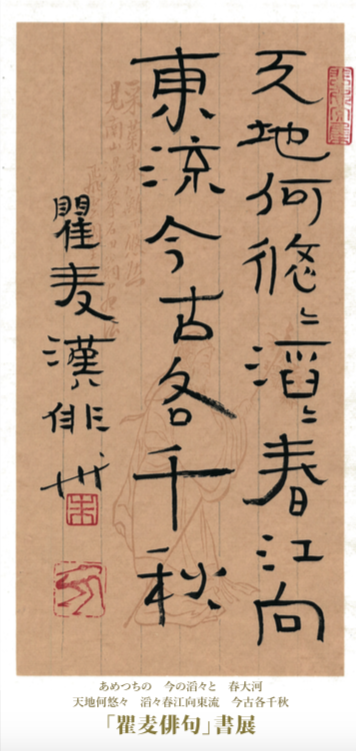 天地何悠〻滔〻春江向
東流今古各千秋
瞿麦漢俳
あめつちの　今の滔々と　春大河
天地何悠々　滔々春江向東流　今古各千秋
「瞿麦俳句」書展